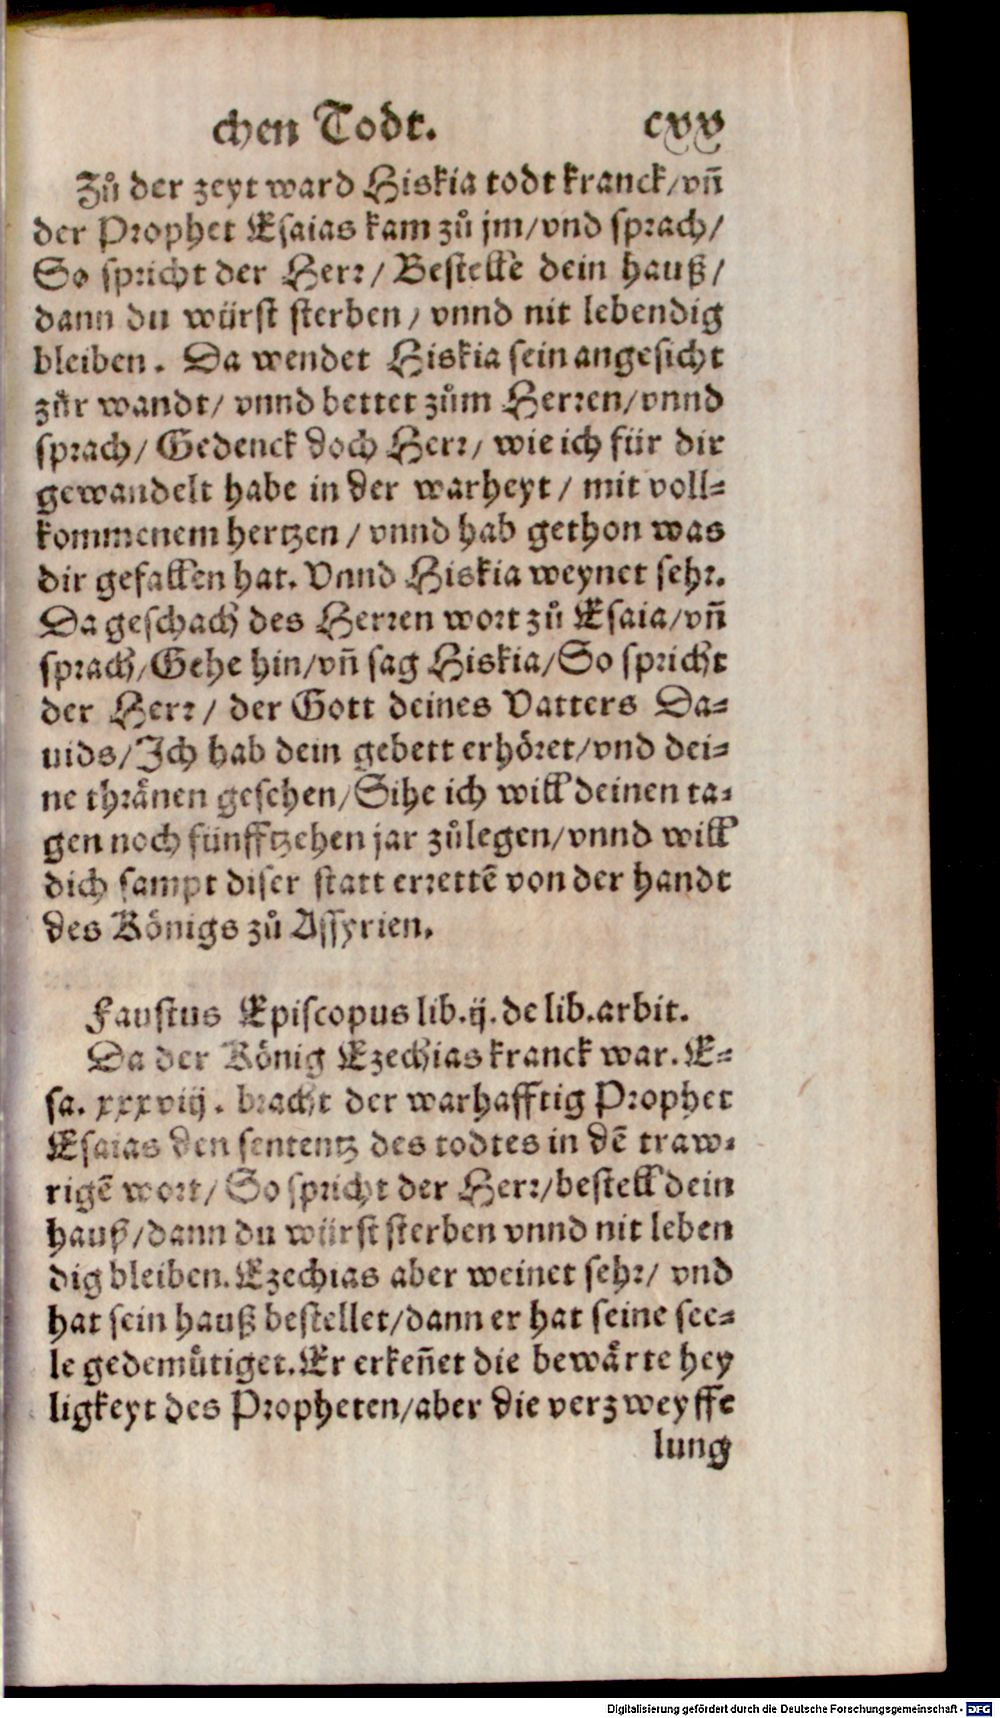 chen Todt. cxv
Zů der zeyt ward Hiskia todt kranck/vñ
der Prophet Esaias kam zů jm/vnd sprach/
So spricht der Herr/ Bestelle dein hauß/
dann du würst sterben/ vnnd nit lebendig
bleiben. Da wendet Hiskia sein angesicht
zůr wandt/ vnnd bettet zům Herren/vnnd
sprach/ Gedenck doch Herr/ wie ich für dir
gewandelt habe in der warheyt/ mit voll-
kommenem hertzen/ vnnd hab gethon was
dir gefallen hat. Vnnd Hiskia weynet sehr.
Da geschach des Herren wort zů Esaia/vñ
sprach/Gehe hin/vñ sag Hiskia/So spricht
der Herr/ der Gott deines Vatters Da-
uids/Ich hab dein gebett erhöret/vnd dei-
ne thränen gesehen/Sihe ich will deinen ta-
gen noch fünfftzehen jar zůlegen/vnnd will
dich sampt diser statt errettẽ von der handt
des Königs zů Assyrien.
Faustus Episcopus lib.ij.de lib.arbit.
Da der König Ezechias kranck war. E-
sa. xxxviij. bracht der warhafftig Prophet
Esaias den sententz des todtes in dẽ traw-
rigẽ wort/ So spricht der Herr/bestell dein
hauß/dann du würst sterben vnnd nit leben
dig bleiben. Ezechias aber weinet sehr/ vnd
hat sein hauß bestellet/dann er hat seine see-
le gedemůtiget. Er erkeñet die bewärte hey
ligkeyt des Propheten/aber die verzweyffe
lung
Digitalisierung gefördert durch die Deutsche Forschungsgemeinschaft - DFG